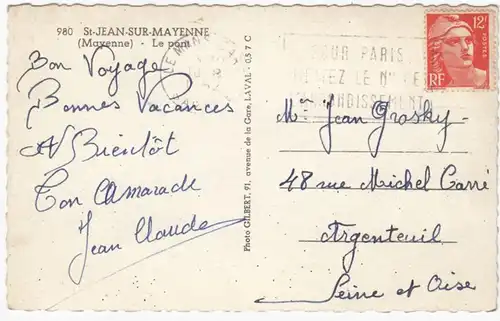 980 St-JEAN-SUR-MAYENNE
(Mayenne) - Le pont
Bon Voyage
Bonnes Vacances
A Bientôt
Ton Camarade
Jean Claude
Photo GILBERT, 91, avenue de la Gare, LAVAL - 057 C
POUR PARIS
LE N°
12F
POSTES
RF
Mr Jean Grosky
48 rue Michel Carré
Argenteuil
Seine et Oise